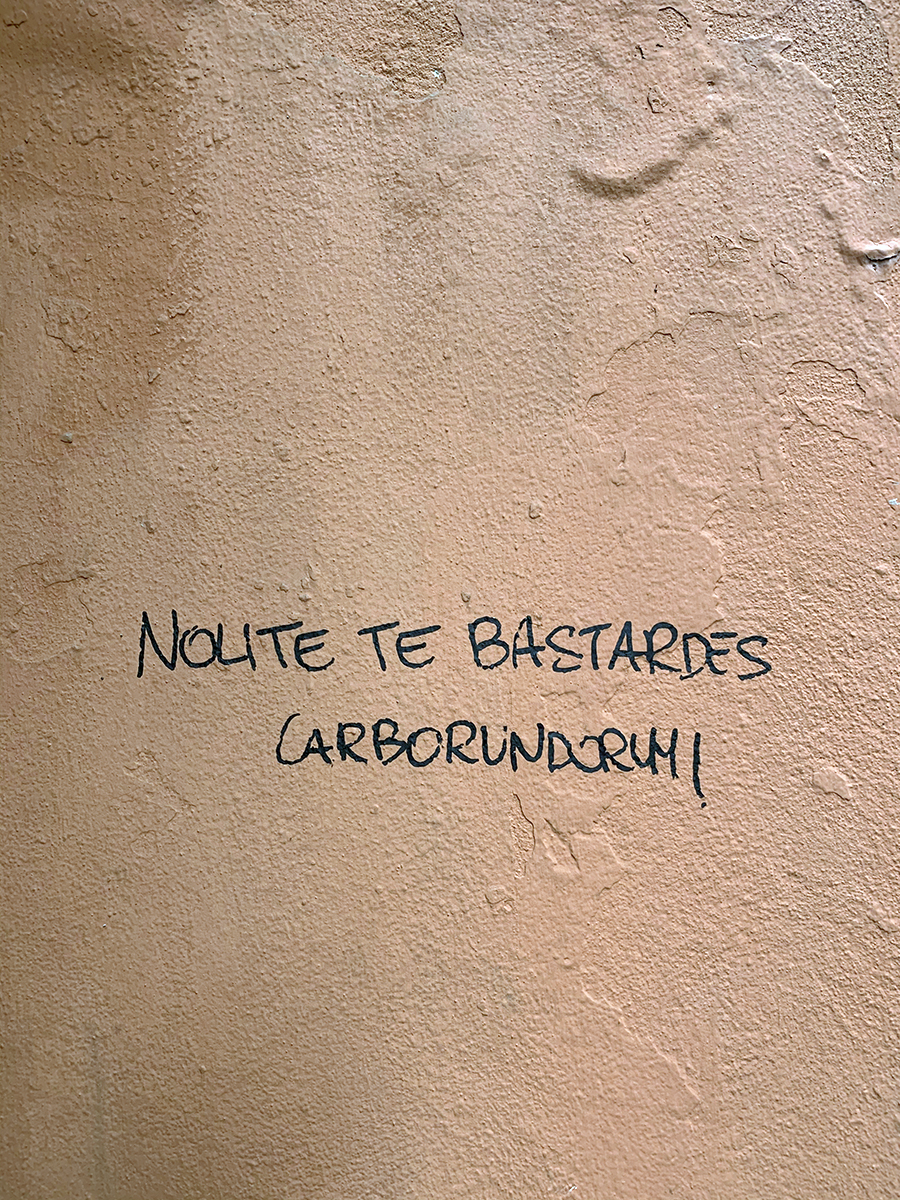 NOLITE TE BASTARDES
CARBORUNDORUM!